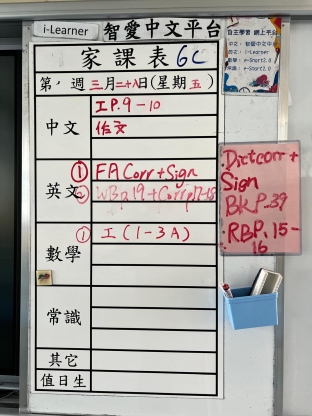 i-Learner 智愛中文平台
家課表 6C
第,週三月二十八日(星期五)
中文
工P.9-10
作文
英文
① FA Corr + Sign
② WBp.19 + Corr p17-18
數學
① 工(1-3A)
常識
其它
值日生
自主學習 網上平台
Dictcorr +
Sign
BKP.39
RBP.15-
16